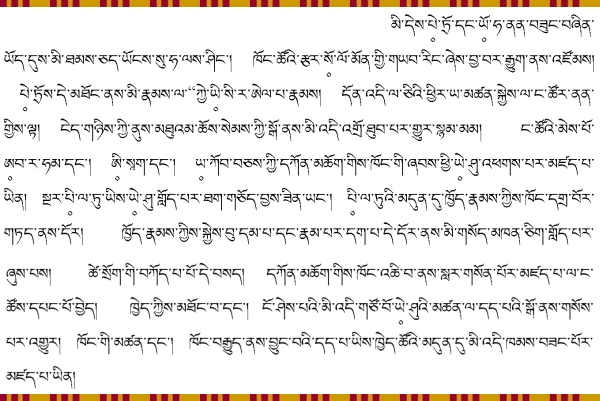 མི་དེས་པེ་ཏྲོ་དང་ཡོ་ཧ་ནན་བཟུང་བཞིན་
ཡོད་དུས་མི་ཐམས་ཅད་ཡོངས་སུ་ཧ་ལས་ཤིང་། ཁོང་ཚོའི་རྩར་སོ་ལོ་མོན་གྱི་གཡབ་རིང་ཞེས་བྱ་བར་རྒྱུག་ནས་འཛོམས།
པེ་ཏྲོས་དེ་མཐོང་ནས་མི་རྣམས་ལ་“ཀྱེ་ཡི་སི་ར་ཨེལ་པ་རྣམས། དོན་འདི་ལ་ཅིའི་ཕྱིར་ཡ་མཚན་སྐྱེས་ལ་ང་ཚོར་ནན་
གྱིས་ལྟ། ངེད་གཉིས་ཀྱི་ནུས་མཐུའམ་ཆོས་སེམས་ཀྱི་སྒོ་ནས་མི་འདི་འགྲོ་ཐུབ་པར་གྱུར་སྙམ་མམ། ང་ཚོའི་མེས་པོ་
ཨབ་ར་ཧམ་དང་། ཨི་སཱག་དང་། ཡ་ཀོབ་བཅས་ཀྱི་དཀོན་མཆོག་གིས་ཁོང་གི་ཞབས་ཕྱི་ཡེ་ཤུ་འཕགས་པར་མཛད་པ་
ཡིན། སྔར་པི་ལ་ཏུ་ཡིས་ཡེ་ཤུ་གློད་པར་ཐག་གཅོད་བྱས་ཟིན་ཡང་། པི་ལ་ཏུའི་མདུན་དུ་ཁྱོད་རྣམས་ཀྱིས་ཁོང་དགྲ་བོར་
གཏད་ནས་དོར། ཁྱོད་རྣམས་ཀྱིས་སྐྱེས་བུ་དམ་པ་དང་རྣམ་པར་དག་པ་དེ་དོར་ནས་མི་གསོད་མཁན་ཅིག་གློད་པར་
ཞུས་པས། ཚེ་སྲོག་གི་བཀོད་པ་པོ་དེ་བསད། དཀོན་མཆོག་གིས་ཁོང་འཆི་བ་ནས་སླར་གསོན་པོར་མཛད་པ་ལ་ང་
ཚོས་དཔང་པོ་བྱེད། ཁྱེད་ཀྱིས་མཐོང་བ་དང་། ངོ་ཤེས་པའི་མི་འདི་གཙོ་བོ་ཡེ་ཤུའི་མཚན་ལ་དད་པའི་སྒོ་ནས་གསོས་
པར་འགྱུར། ཁོང་གི་མཚན་དང་། ཁོང་བརྒྱུད་ནས་བྱུང་བའི་དད་པ་ཡིས་ཁྱེད་ཚོའི་མདུན་དུ་མི་འདི་ཁམས་བཟང་པོར་
མཛད་པ་ཡིན།